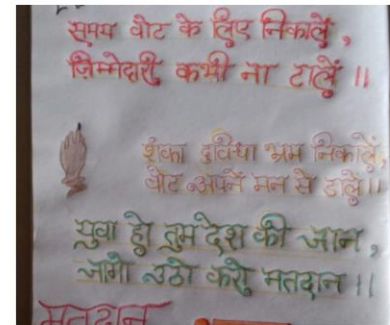 समय वोट के लिए निकालें,
ज़िम्मेदारी कभी ना टालें ।।
शंका दुविधा भ्रम निकालें,
वोट अपने मन से डालें।।
युवा हो तुम देश की जान,
जागो उठो करो मतदान ।।
मतदान